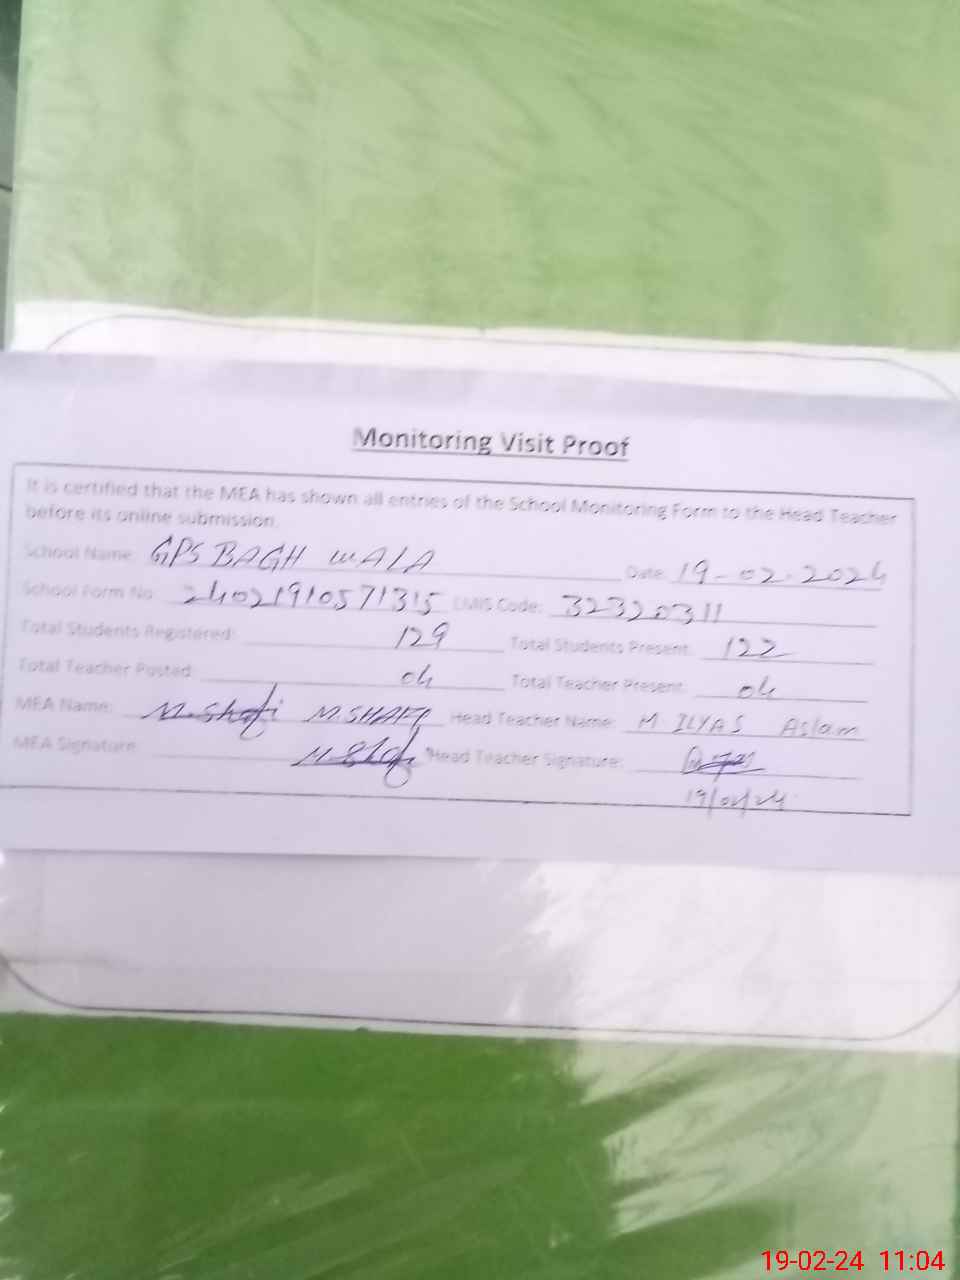 Monitoring Visit Proof
It is certified that the MEA has shown all entries of the School Monitoring Form to the Head Teacher
before its online submission.
School Name: GPS BAGH WALA Date: 19-02-2024
School Form No: 24021910571315 EMIS Code: 32320311
Total Students Registered: 129 Total Students Present: 122
Total Teacher Posted: 04 Total Teacher Present: 04
MEA Name: M.Shafi M.SHAFI Head Teacher Name: M ILYAS Aslam
MEA Signature: M.Shafi Head Teacher Signature:
19/02/24
19-02-24 11:04